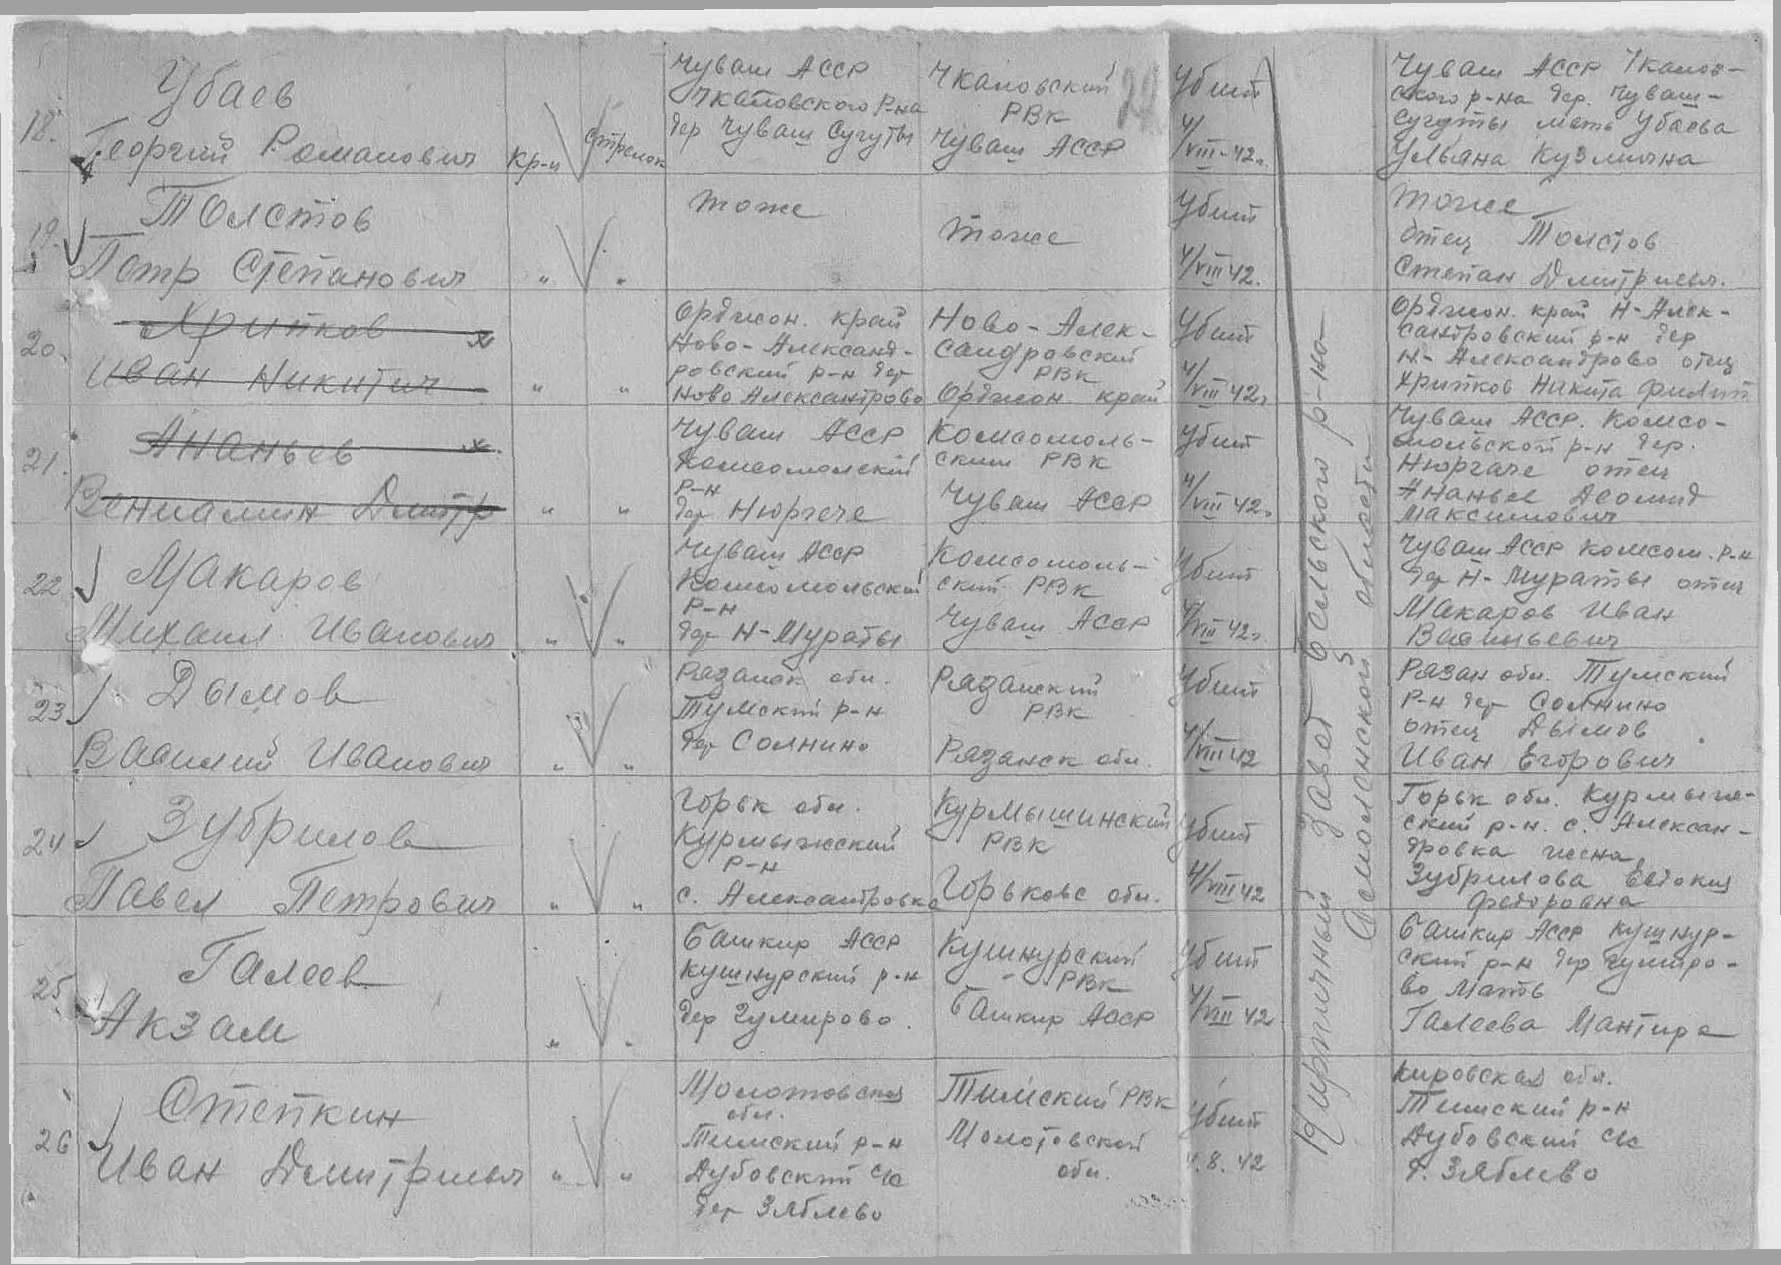 18.
Убаев
Георгий Романович
кр-ц
стрелок
Чуваш АССР
Чкаловского р-на
дер Чуваш Сугуты
Чкаловский
РВК
Чуваш АССР
22
Убит
4/VIII-42г.
Чуваш АССР Чкалов-
ского р-на дер. Чуваш-
сугуты мать Убаева
Ульяна Кузминична
19.
Толстов
Петр Степанович
" "
тоже
тоже
Убит
4/VIII 42.
тоже
отец Толстов
Степан Дмитриевич.
20.
Хрипков
Иван Никитич
" "
Орджон. край
Ново-Александ-
ровский р-н дер
Ново Александрово
Ново-Алек-
сандровский
РВК
Орджон. край
Убит
4/VIII 42г
Орджон. край Н-Алек-
сандровский р-н дер
Н-Александрово отец
Хрипков Никита Филип
21.
Ананьев
Вениамин Дмитр
" "
Чуваш АССР
Комсомолский
р-н
дер Нюргече
Комсомоль-
ским РВК
Чуваш АССР
Убит
4/VIII 42г
Чуваш АССР. Комсо-
мольской р-н дер.
Нюргаче отец
Ананьев
Максимович
22
Макаров
Михаил Иванович
" "
Чуваш АССР
Комсомольский
р-н
дер Н-Мураты
Комсомоль-
ский РВК
Чуваш АССР
Убит
4/VIII 42г
Чуваш АССР Комсом. р-н
дер Н-Мураты отец
Макаров Иван
Васильевич
23
Дымов
Василий Иванович
" "
Рязанск обл.
Тумский р-н
дер Солнино
Рязанский
РВК
Рязанск обл.
Убит
4/VIII 42
Рязан обл. Тумский
р-н дер Солнино
отец Дымов
Иван Егорович
24
Зубрилов
Павел Петрович
" "
Горьк обл.
Курмышский
р-н
с. Александровка
Курмышинский
РВК
Горьковс обл.
Убит
4/VIII 42
Горьк обл. Курмыш-
ский р-н. с. Алексан-
дровка жена
Зубрилова Евдокия
Федоровна
25
Галеев
Акзам
" "
Башкир АССР
Кушнурский р-н
дер Гумирово.
Кушнурский
РВК
Башкир АССР
Убит
4/VIII 42
Башкир АССР Кушнур-
ский р-н дер Гумиро-
во мать
Галеева Мангира
26
Степкин
Иван Дмитриевич
" "
Молотовская
обл.
Тимский р-н
Дубовский с/с
дер Зяблево
Тимский РВК
Молотовской
обл.
Убит
4.8.42
Кировская обл.
Тимский р-н
Дубовский с/с
д. Зяблево
Кирпичный завод Бельского р-на
Смоленской области